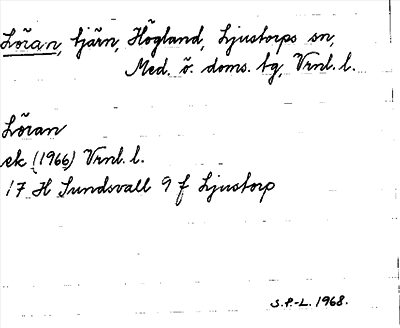 Löran, tjärn, Högland, Ljustorps sn,
Med. ö. doms. tg, Vrnl. l.
Löran
ek (1966) Vrnl. l.
17 H Sundsvall 9 f Ljustorp
S.P-L. 1968.